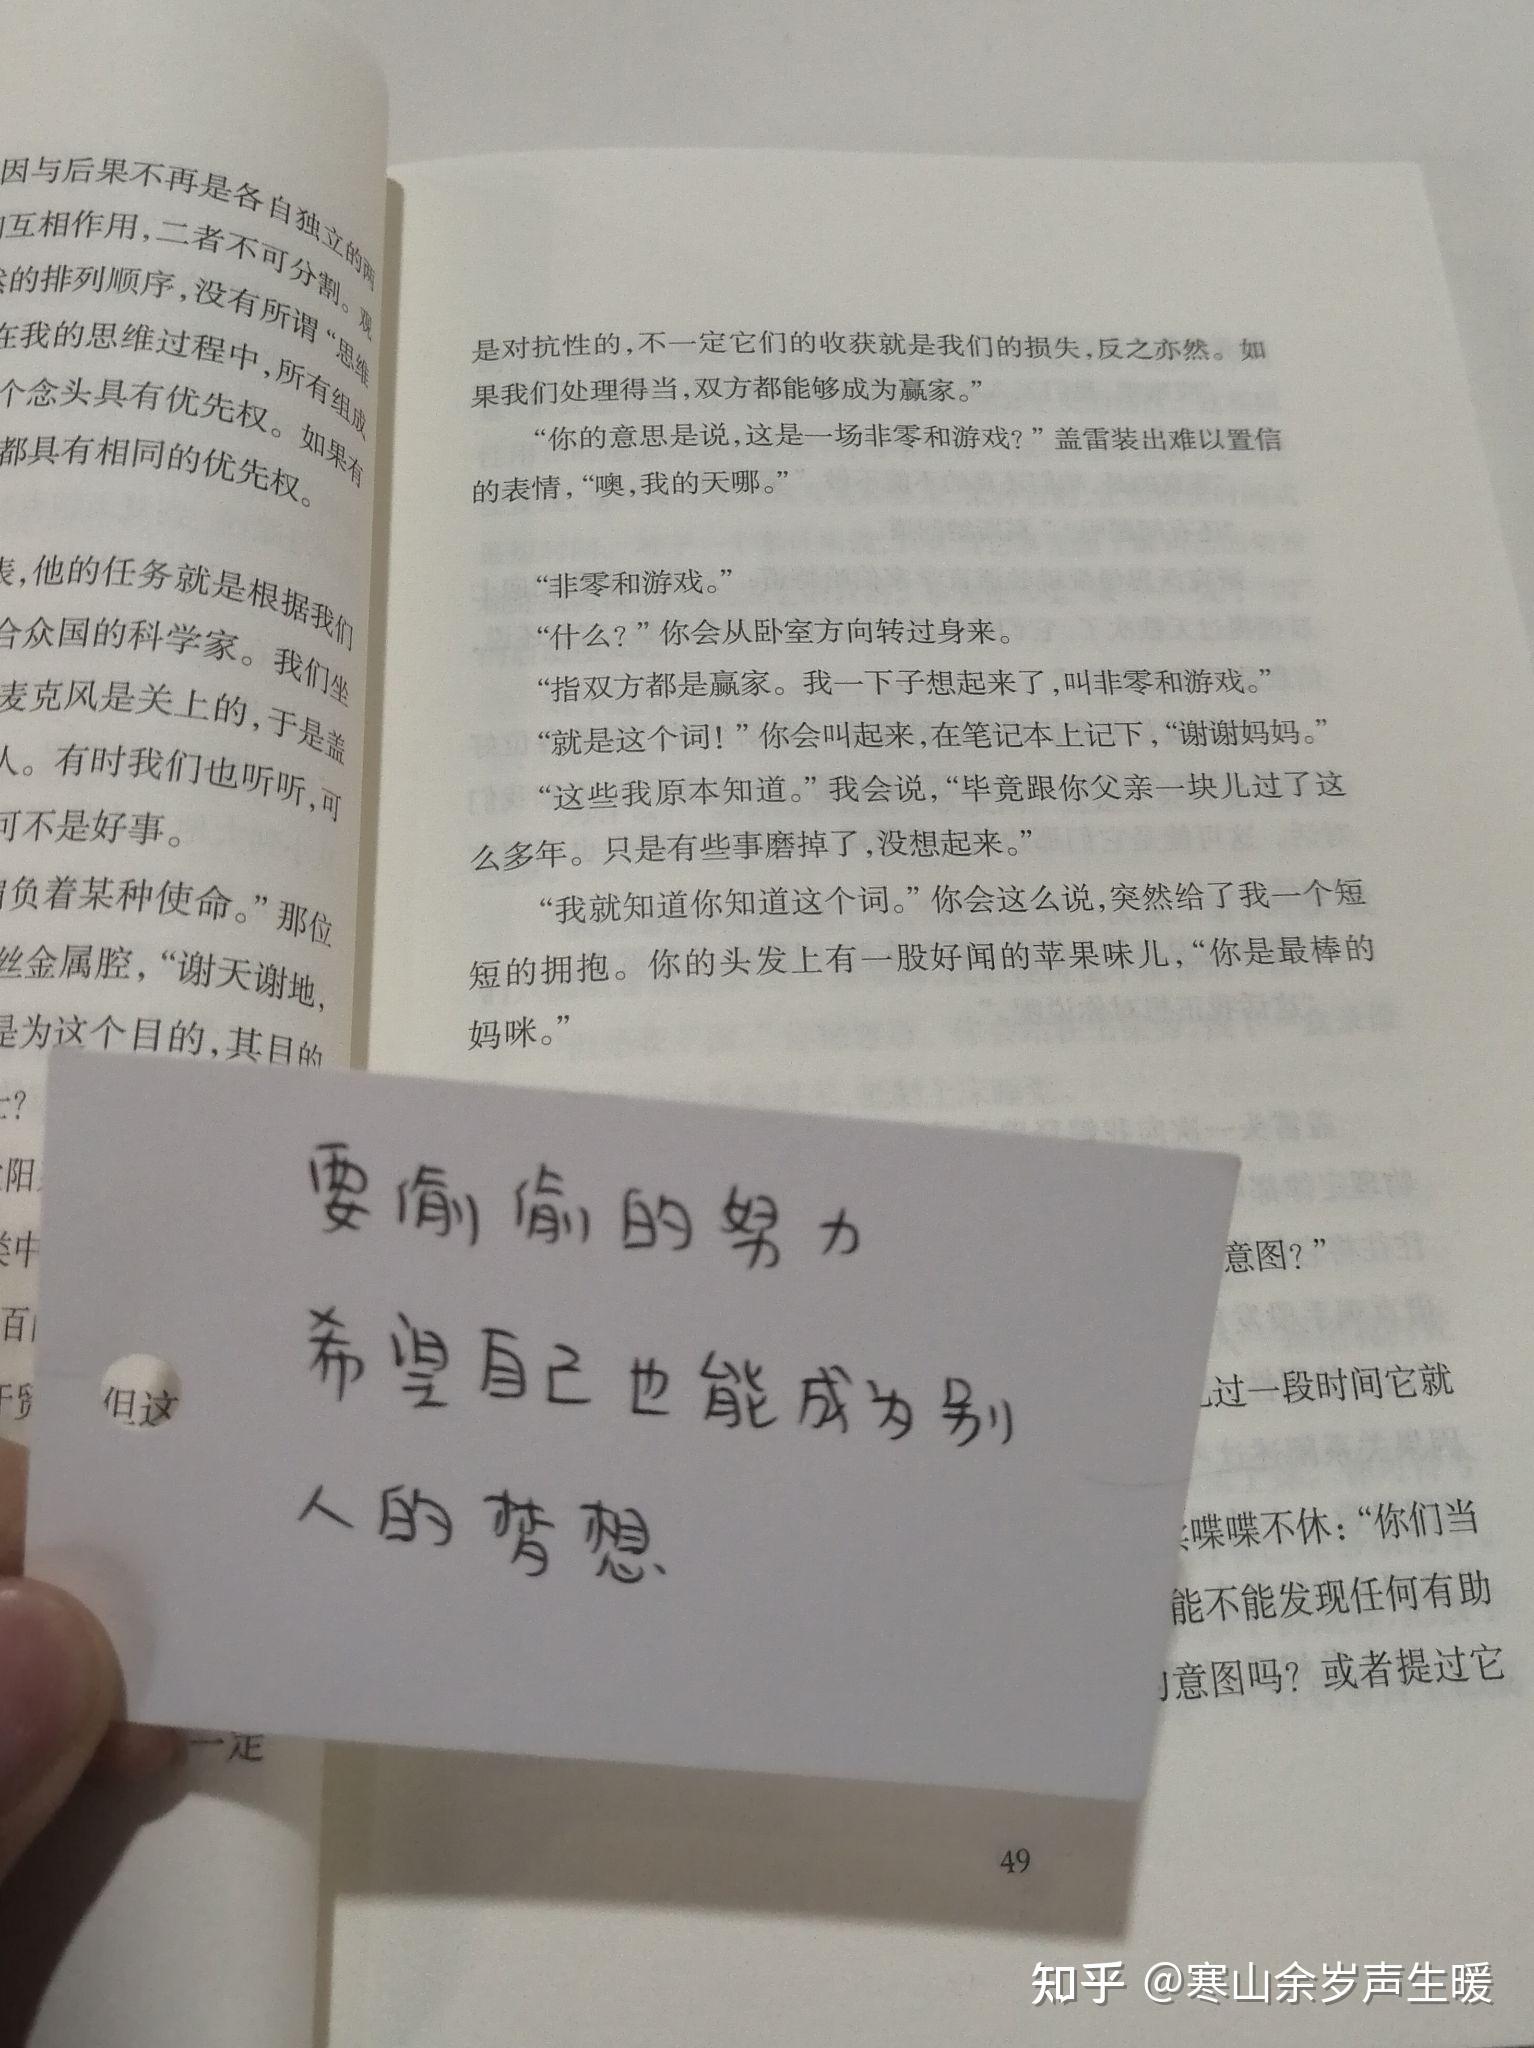 因与后果不再是各自独立的两
互相作用，二者不可分割。观
的排列顺序，没有所谓“思维
在我的思维过程中，所有组成
个念头具有优先权。如果有
都具有相同的优先权。
表，他的任务就是根据我们
合众国的科学家。我们坐
麦克风是关上的，于是盖
人。有时我们也听听，可
可不是好事。
负着某种使命。”那位
丝金属腔，“谢天谢地，
是为这个目的，其目的
阳
类中
百
但这
一定
是对抗性的，不一定它们的收获就是我们的损失，反之亦然。如
果我们处理得当，双方都能够成为赢家。”
“你的意思是说，这是一场非零和游戏？”盖雷装出难以置信
的表情，“噢，我的天哪。”
“非零和游戏。”
“什么？”你会从卧室方向转过身来。
“指双方都是赢家。我一下子想起来了，叫非零和游戏。”
“就是这个词！”你会叫起来，在笔记本上记下，“谢谢妈妈。”
“这些我原本知道。”我会说，“毕竟跟你父亲一块儿过了这
么多年。只是有些事磨掉了，没想起来。”
“我就知道你知道这个词。”你会这么说，突然给了我一个短
短的拥抱。你的头发上有一股好闻的苹果味儿，“你是最棒的
妈咪。”
意图？”
过一段时间它就
喋喋不休：“你们当
能不能发现任何有助
意图吗？或者提过它
要偷偷的努力
希望自己也能成为别
人的梦想
49
知乎 @寒山余岁声生暖